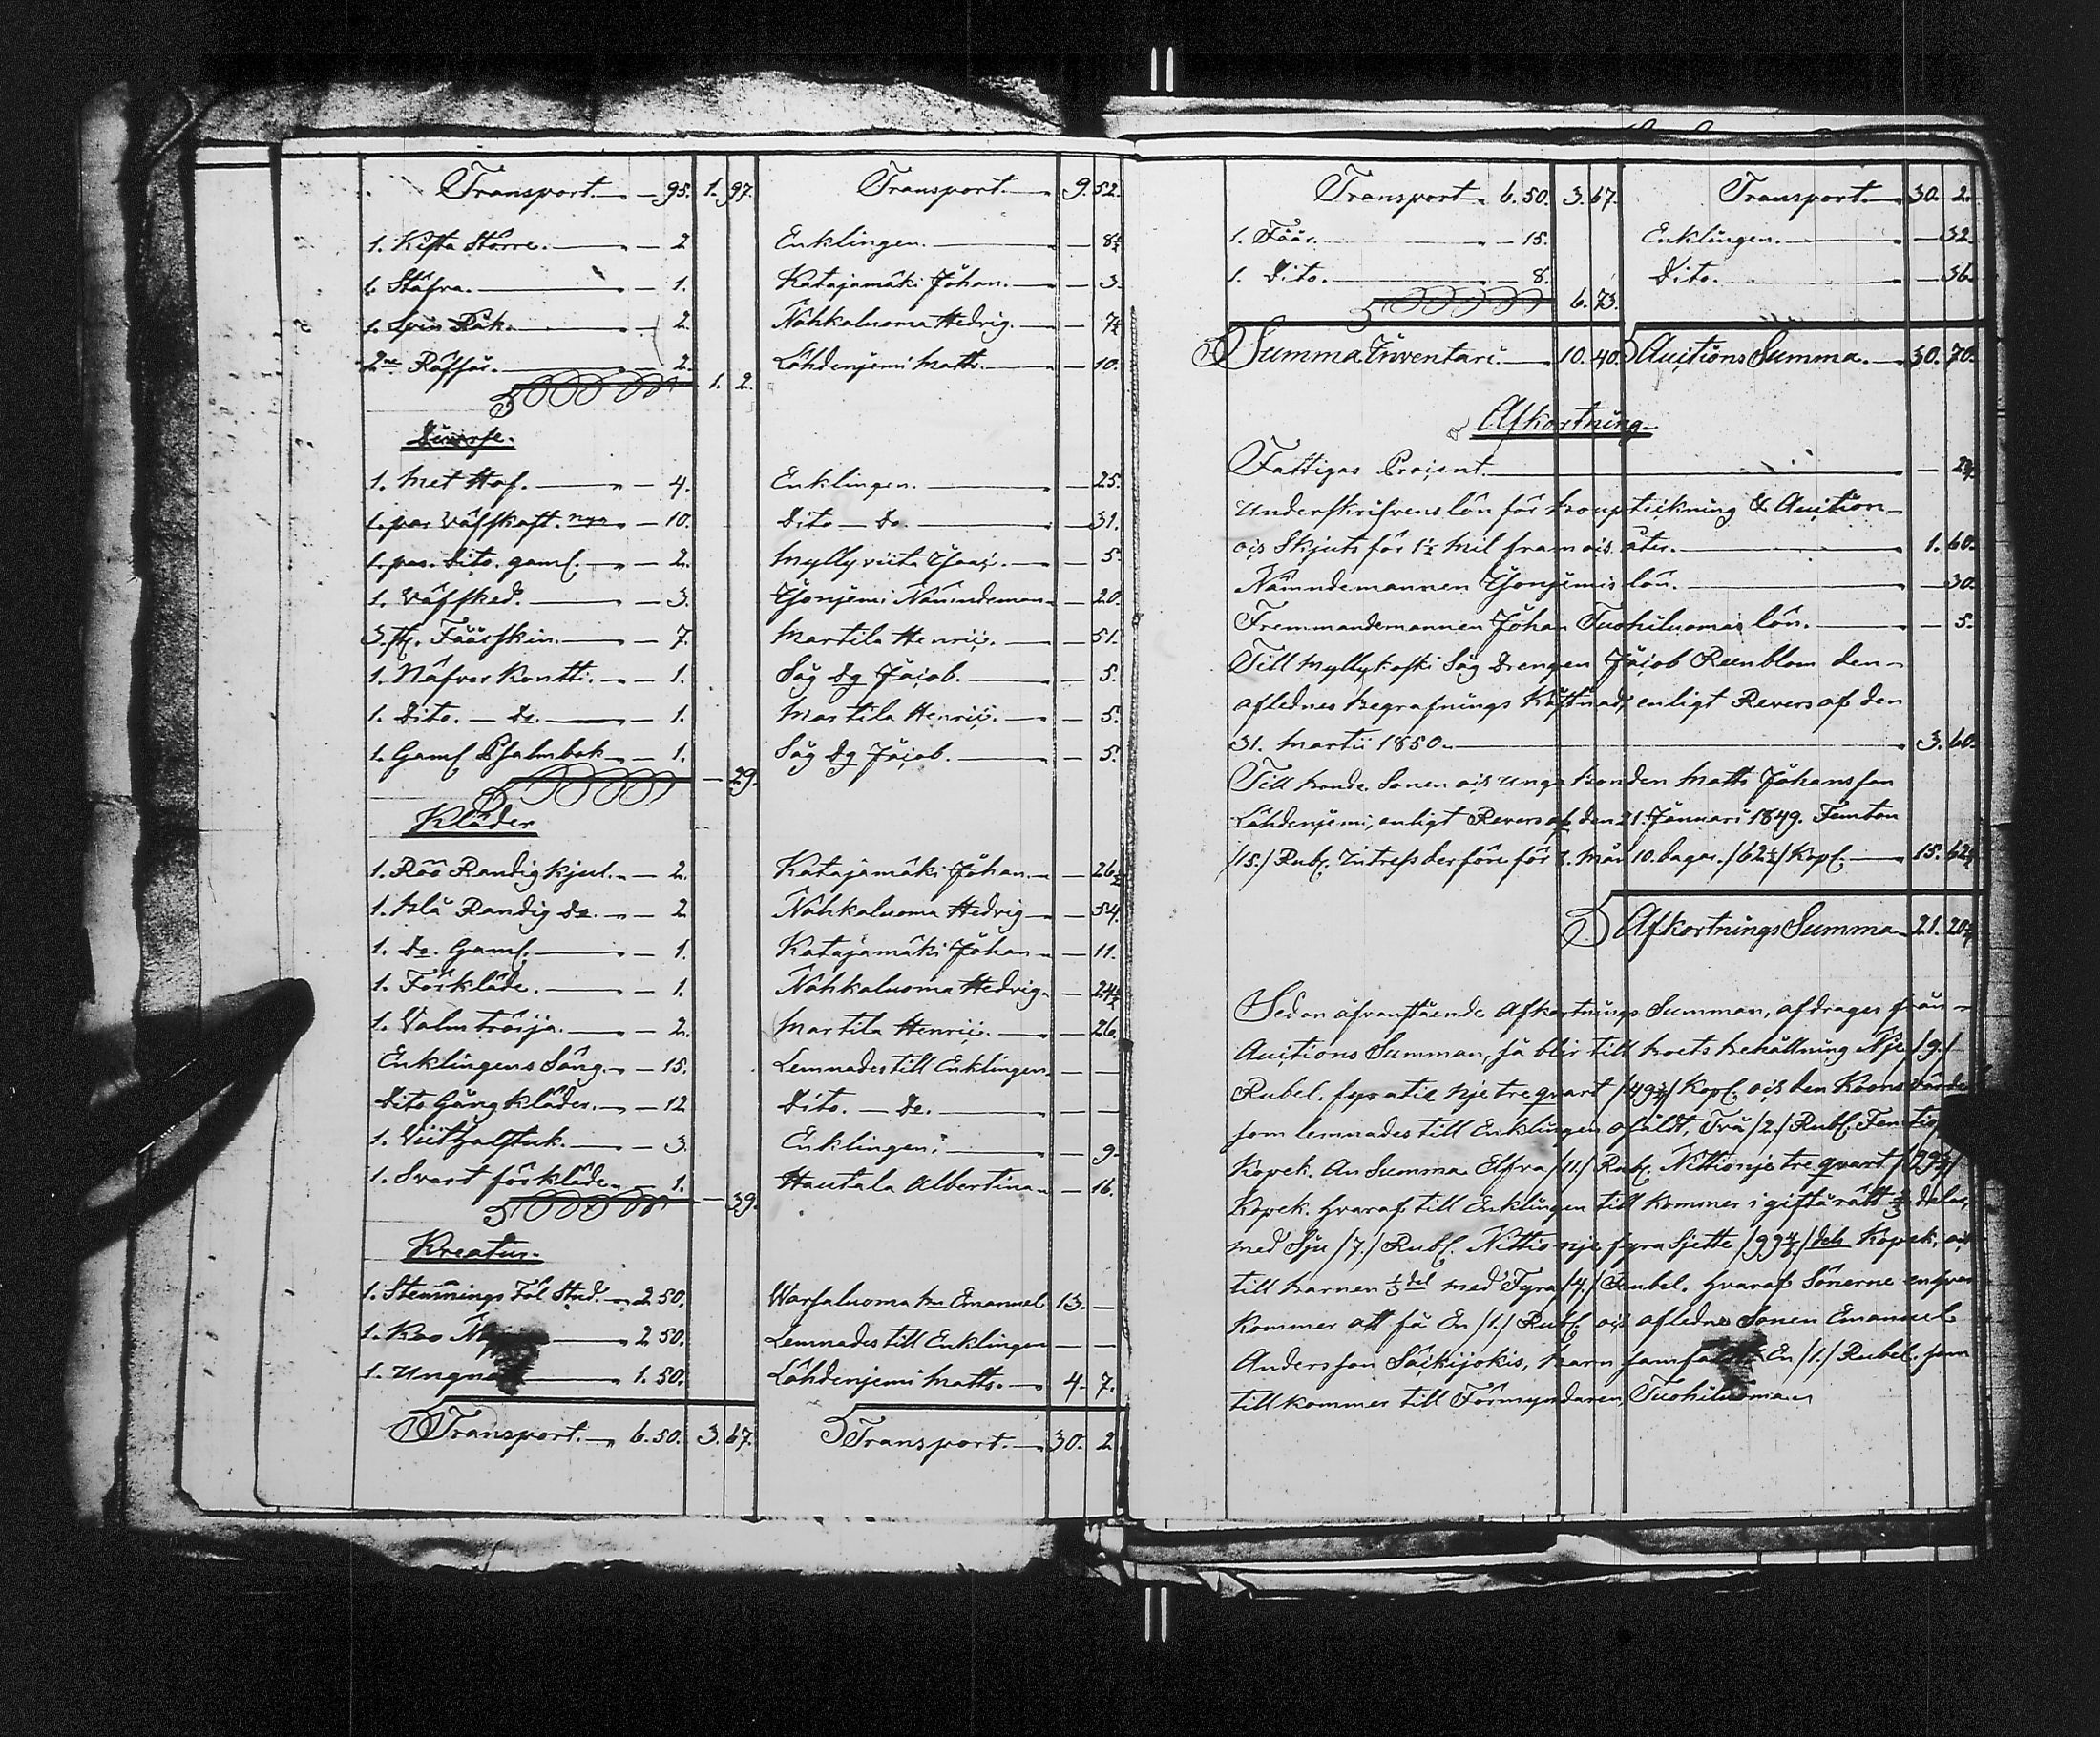 Transport. — 95. 1. 97. Transport. — 9. 52.
1. Kista Större. — 2 Enklingen. — 8½
1. Stäfva. — 1. Katajamäki Johan. — 3.
1. Svin Råk. — 2. Nahkaluoma Hedvig. — 7½
2ne Räffsor. — 2. Lähdenjemi Matts. — 10.
1. 2.
Diverse.
1. Met Haf. — 4. Enklingen. — 25.
1. par Väfskaft. nya — 10. Dito — Do. — 31.
1. par. Dito. gaml. — 2. Myllyviita Isaac. — 5.
1. Väfsked. — 3. Yonjemi Nämndeman — 20.
3. st. Fåårskin. — 7. Martila Henric. — 51.
1. Näfver Kontti. — 1. Såg Dg Jacob. — 5.
1. Dito. — Do. — 1. Martila Henric. — 5.
1. Gaml Psalmbok — 1. Såg Dg Jacob. — 5.
— 29.
Kläder
1. Röö Randig kjul. — 2. Katajamäki Johan. — 26½
1. Blå Randig Do. — 2. Nahkaluoma Hedvig — 54.
1. Do. Gaml. — 1. Katajamäki Johan — 11.
1. Förkläde. — 1. Nahkaluoma Hedvig. — 24½
1. Valmtröija. — 2. Martila Henric. — 26.
Enklingens Säng. — 15. Lemnades till Enklingen. — —
Dito Gångkläder. — 12 Dito. — Do. — —
1. Viit halstuk. — 3. Enklingen. — 9.
1. Svart förkläde — 1. Hautala Albertina — 16.
— 39.
Kreatur.
1. Stemnings Föl Stud. — 2 50. Warsaluoma Emanuel 13. —
1. Koo — 2 50. Lemnades till Enklingen — —
1. Ungnöt — 1. 50. Lähdenjemi Matts. — 4. 7.
Transport. — 6. 50. 3. 67. Transport. — 30. 2
Transport — 6. 50. 3. 67. Transport. — 30. 2.
1. Fåår. — 15. Enklingen. — 32.
1. Dito. — 8. Dito. — 36.
6. 73.
Summa Inventari — 10. 40. Auctions Summa. — 30. 70.
Afkortning
Fattigas Procent. —
Underskrifvens lön för bouptekning & Auction
och Skjuts för 1½ Mil fram och åter. — 1. 60.
Nämndemannen Yonjemis lön. — 30.
Fremmandemannen Johan Tuohiluomas lön. — 5.
Till Myllykoski Såg Drengen Jacob Reenblom den
aflednes begrafnings Kåstnad, enligt Revers af den
31. Martii 1850. — 3. 60.
Till bonde Sonen och unga bonden Matts Johansson
Lähdenjemi, enligt Revers af den 21. Januari 1849. Femton
/15./ Rubl. Intress derföre för mån 10. dagar. /62½/ Kop. — 15. 62½
Afkortnings Summa — 21. 20¼
Sedan ofvanstående Afkortnings Summan, afdrages från
Auctions Summan, så blir till boets behållning Nje /9./
Rubel. fyratie nje tre qvart /49¾/ Kop. och den Koons värde
som lemnades till Enklingen osåldt, Två /2./ Rubl. Femtio
Kopek. An Summa Elfva /11./ Rubl. Nittionje tre qvart /99¾/
Kopek. hvaraf till Enklingen till kommer i giftorätt ⅔ delar,
med Sju /7./ Rubl. Nittionje fyra Sjette /99 4/6/ dels Kopek, och
till barnen ⅓ del med Fyra /4./ Rubel. hvaraf Sönerne en hvar
kommer att få En /1./ Rubl. och afledne Sonen Emanuel
Andersson Säikijokis, barn samfält En /1./ Rubel. som
till kommer till Förmyndaren, Tuohiluoma.